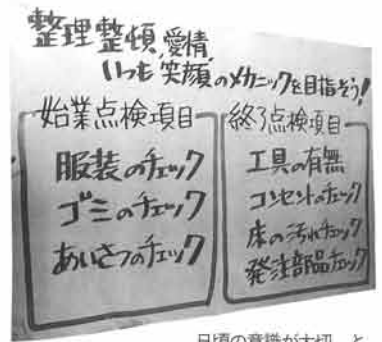 整理整頓、愛情、
いつも笑顔のメカニックを目指そう！
始業点検項目
服装のチェック
ゴミのチェック
あいさつのチェック
終了点検項目
工具の有無
コンセントのチェック
床の汚れチェック
発注部品チェック
日頃の意識が大切、と